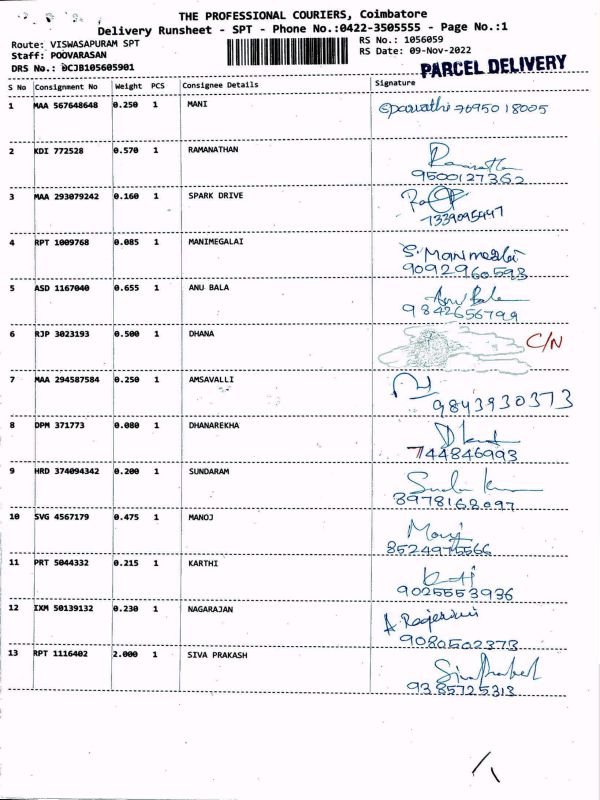 THE PROFESSIONAL COURIERS, Coimbatore
Delivery Runsheet - SPT - Phone No.:0422-3505555 - Page No.:1
Route: VISWASAPURAM SPT
RS No.: 1056059
Staff: POOVARASAN
RS Date: 09-Nov-2022
DRS No.: DCJB105605901
PARCEL DELIVERY
S No Consignment No Weight PCS Consignee Details Signature
1 MAA 567648648 0.250 1 MANI
7695018005
2 KDI 772528 0.570 1 RAMANATHAN
9500127362
3 MAA 293079242 0.160 1 SPARK DRIVE
4 RPT 1009768 0.085 1 MANIMEGALAI
S. Manimeglai
9092960593
5 ASD 1167040 0.655 1 ANU BALA
Anu Bala
9842656799
6 RJP 3023193 0.500 1 DHANA
C/N
7 MAA 294587584 0.250 1 AMSAVALLI
9843930373
8 DPM 371773 0.080 1 DHANAREKHA
744846993
9 HRD 374094342 0.200 1 SUNDARAM
8978168097
10 SVG 4567179 0.475 1 MANOJ
Manoj
11 PRT 5044332 0.215 1 KARTHI
9025553936
12 IXM 50139132 0.230 1 NAGARAJAN
9080502373
13 RPT 1116402 2.000 1 SIVA PRAKASH
9385725313